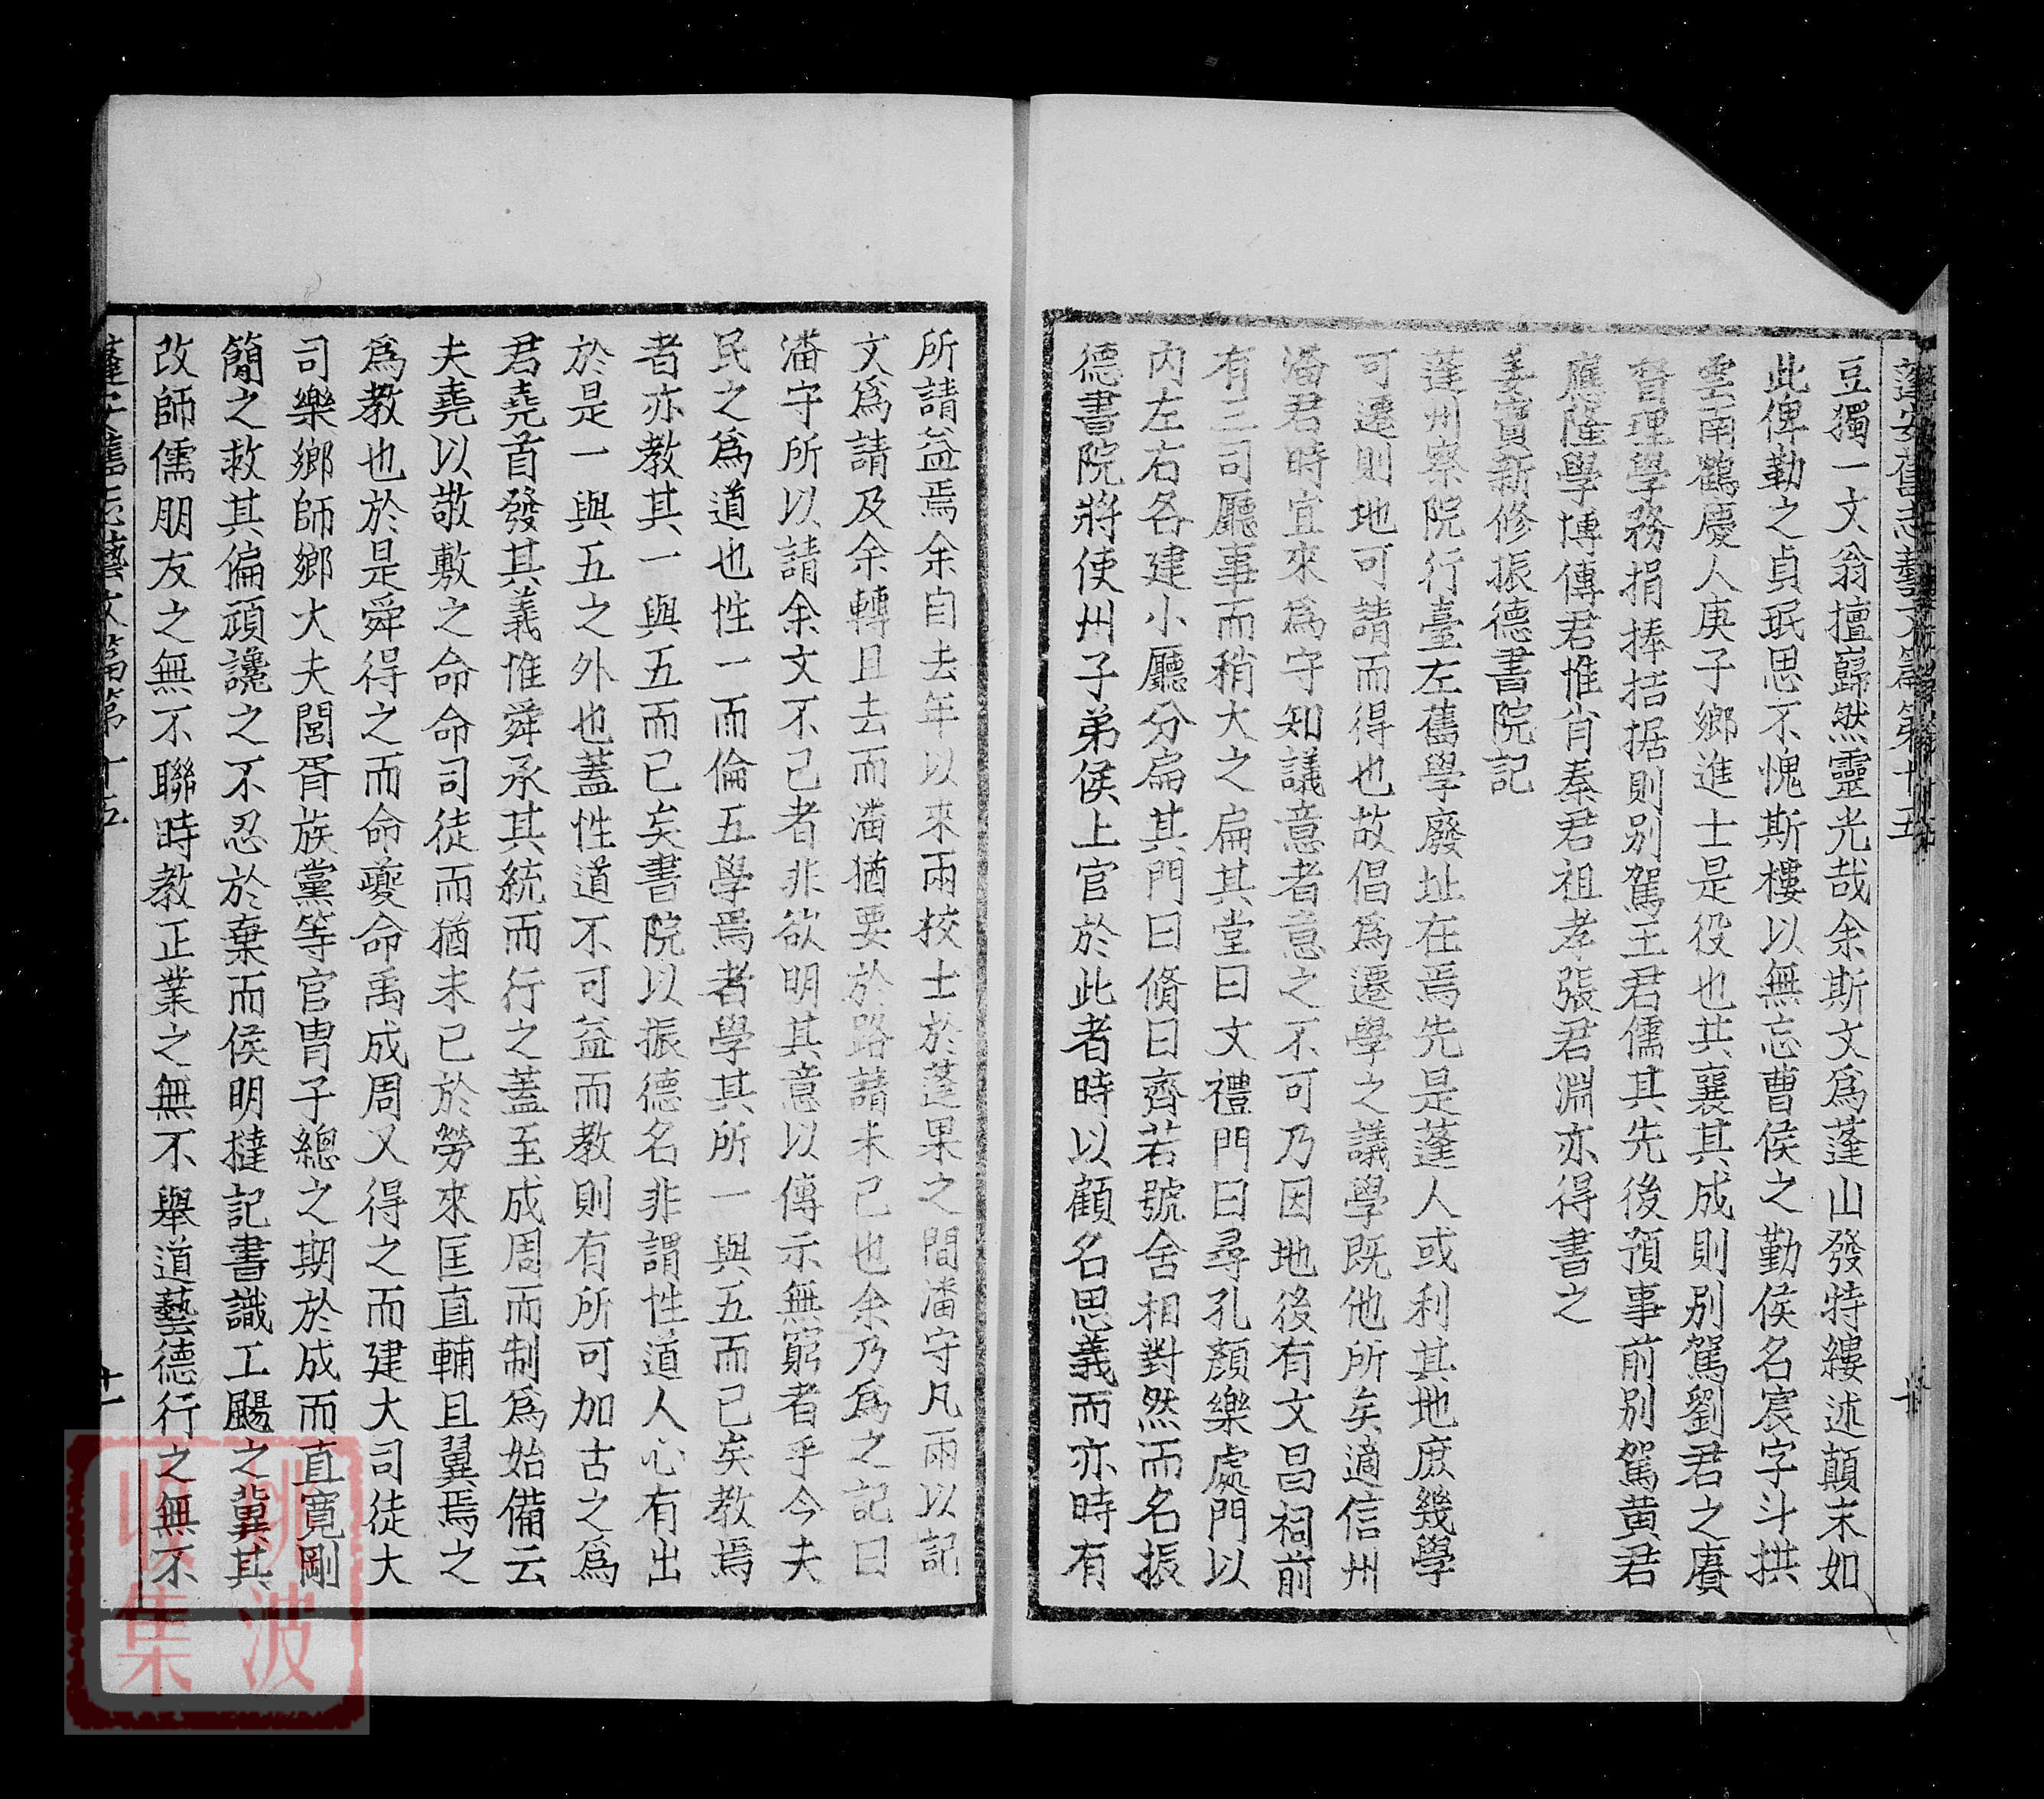 蓬安舊志藝文篇第十五
豆獨一文翁擅巋然靈光哉余斯文爲蓬山發特縷述顛末如
此俾勒之貞珉思不愧斯樓以無忘曹侯之勤侯名宸字斗拱
雲南鶴慶人庚子鄉進士是役也其襄其成則別駕劉君之賡
督理學務捐捧拮据則别駕王君儒其先後預事前别駕黄君
應隆學博傳君惟肖秦君祖孝張君淵亦得書之
姜寳新修振德書院記
蓬州察院行臺左舊學廢址在焉先是蓬人或利其地庶幾學
可遷則地可請而得也故倡爲遷學之議學既他所矣適信州
潘君時宜來爲守知議意者意之不可乃因地後有文昌祠前
有三司廳事而稍大之扁其堂曰文禮門曰尋孔顏樂處門以
内左右各建小廳分扁其門曰脩曰齊若號舍相對然而名振
德書院將使州子弟侯上官於此者時以顧名思義而亦時有
所請益焉余自去年以來兩校士於蓬果之間潘守凡兩以記
文爲請及余轉且去而潘猶要於路請未己也余乃爲之記曰
潘守所以請余文不己者非欲明其意以傳示無窮者乎今夫
民之爲道也性一而倫五學焉者學其所一與五而已矣教焉
者亦教其一與五而已矣書院以振德名非謂性道人心有出
於是一與五之外也蓋性道不可益而教則有所可加古之爲
君堯首發其義惟舜承其統而行之蓋至成周而制爲始備云
夫堯以敬敷之命命司徒而猶未已於勞來匡直輔且翼焉之
爲教也於是舜得之而命夔命禹成周又得之而建大司徒大
司樂鄉師鄉大夫閭胥族黨等官冑子總之期於成而直寛剛
簡之救其偏頑讒之不忍於棄而侯明撻記書識工颺之冀其
改師儒朋友之無不聯時教正業之無不舉道藝德行之無不
蓬安舊志藝文篇第十五
十一
姚波
收集